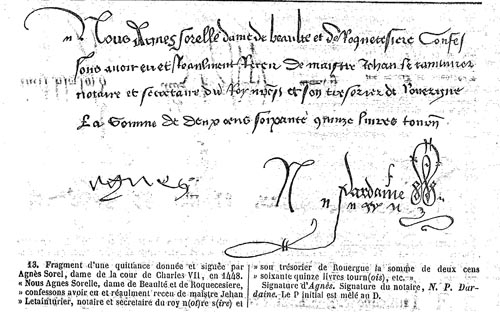 Nous Agnes Sorelle dame de beaulté et de Roquecesiere Confes
sons avoir eu et Realment Receu de maistre Jehan le tainturier
notaire et secretaire du Roy nres et son tresorier de Rouergue
La somme de deux cens soixante quinze livres tourn
Agnes
N
Pardaine
13. Fragment d'une quittance donnée et signée par
Agnès Sorel, dame de la cour de Charles VII, en 1448.
« Nous Agnes Sorelle, dame de Beaulté et de Roquecesiere,
» confessons avoir eu et réaulment receu de maistre Jehan
» Letainturier, notaire et secrétaire du roy n(ot)re s(ire) et
» son trésorier de Rouergue la somme de deux cens
» soixante quinze livres tourn(ois), etc. »
Signature d'Agnès. Signature du notaire, N. P. Dar-
daine. Le P initial est mêlé au D.